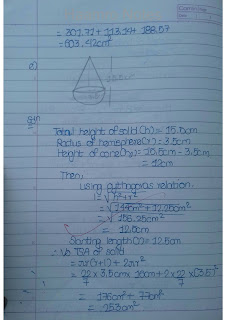 = 301.71 + 113.14 + 188.57
= 603.42cm²
e)
Soln
Total height of solid (h) = 15.5cm
Radius of hemisphere (r) = 3.5cm
Height of cone (h₁) = 15.5cm - 3.5cm
= 12cm
Then,
Using pythagoras relation.
l = √h²+r²
= √144cm² + 12.25cm²
= √156.25cm²
= 12.5cm
Slanting length (l) = 12.5cm
∴ TSA of solid
= πr(r+l) + 2πr²
= 22/7 × 3.5cm × 16cm + 2 × 22/7 × (3.5)²
= 176cm² + 77cm²
= 253cm²